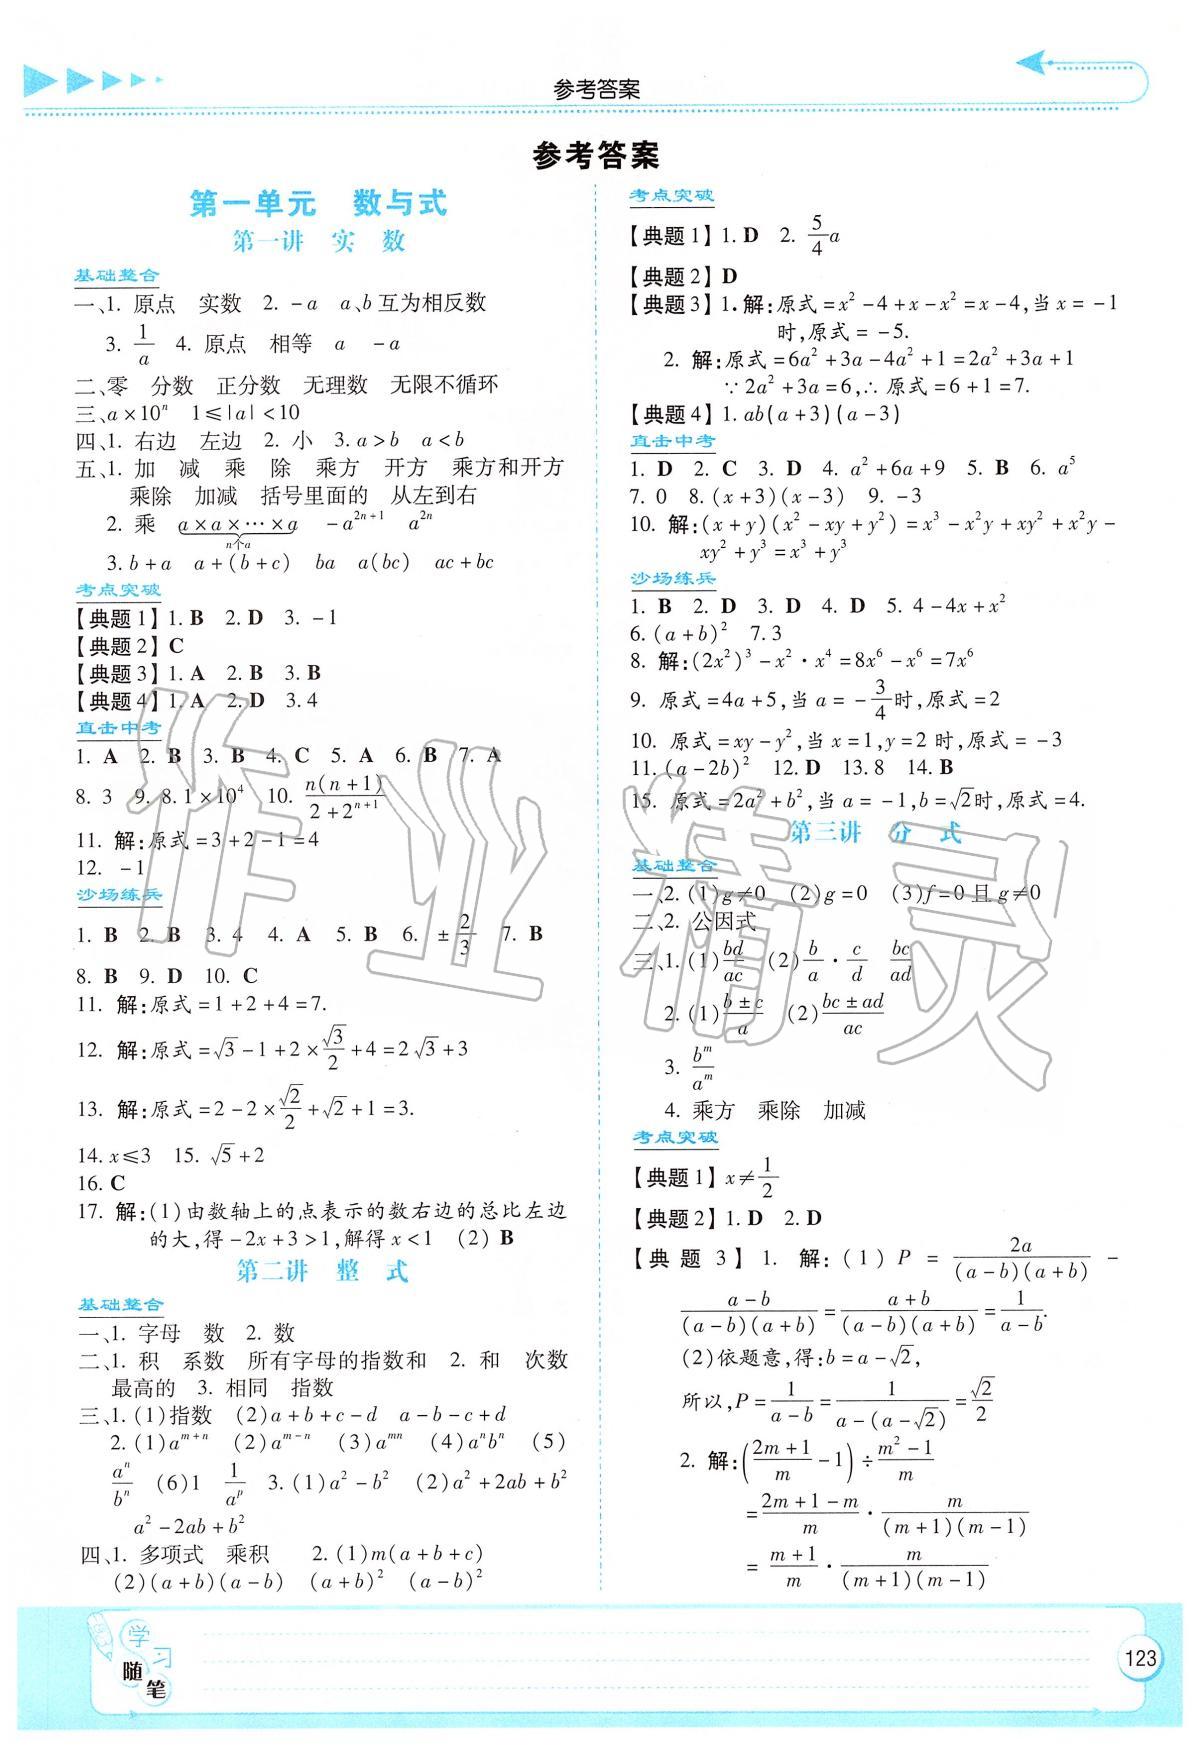 参考答案
参考答案
第一单元 数与式
第一讲 实 数
基础整合
一、1. 原点 实数 2. -a a、b互为相反数
3. 1/a 4. 原点 相等 a -a
二、零 分数 正分数 无理数 无限不循环
三、a×10^n 1≤|a|<10
四、1. 右边 左边 2. 小 3. a>b a<b
五、1. 加 减 乘 除 乘方 开方 乘方和开方
乘除 加减 括号里面的 从左到右
2. 乘 a×a×⋯×a -a^{2n+1} a^{2n}
n个a
3. b+a a+(b+c) ba a(bc) ac+bc
考点突破
【典题1】1. B 2. D 3. -1
【典题2】C
【典题3】1. A 2. B 3. B
【典题4】1. A 2. D 3. 4
直击中考
1. A 2. B 3. B 4. C 5. A 6. B 7. A
8. 3 9. 8.1×10^4 10. n(n+1)/(2+2^{n+1})
11. 解:原式=3+2-1=4
12. -1
沙场练兵
1. B 2. B 3. 4 4. A 5. B 6. ±2/3 7. B
8. B 9. D 10. C
11. 解:原式=1+2+4=7.
12. 解:原式=√3-1+2×√3/2+4=2√3+3
13. 解:原式=2-2×√2/2+√2+1=3.
14. x≤3 15. √5+2
16. C
17. 解:(1)由数轴上的点表示的数右边的总比左边
的大,得-2x+3>1,解得x<1 (2) B
第二讲 整 式
基础整合
一、1. 字母 数 2. 数
二、1. 积 系数 所有字母的指数和 2. 和 次数
最高的 3. 相同 指数
三、1. (1)指数 (2)a+b+c-d a-b-c+d
2. (1)a^{m+n} (2)a^{m-n} (3)a^{mn} (4)a^n b^n (5)
a^n/b^n (6)1 1/a^p 3. (1)a²-b² (2)a²+2ab+b²
a²-2ab+b²
四、1. 多项式 乘积 2. (1)m(a+b+c)
(2)(a+b)(a-b) (a+b)² (a-b)²
考点突破
【典题1】1. D 2. 5/4 a
【典题2】D
【典题3】1. 解:原式=x²-4+x-x²=x-4,当x=-1
时,原式=-5.
2. 解:原式=6a²+3a-4a²+1=2a²+3a+1
∵2a²+3a=6,∴原式=6+1=7.
【典题4】1. ab(a+3)(a-3)
直击中考
1. D 2. C 3. D 4. a²+6a+9 5. B 6. a⁵
7. 0 8. (x+3)(x-3) 9. -3
10. 解:(x+y)(x²-xy+y²)=x³-x²y+xy²+x²y-
xy²+y³=x³+y³
沙场练兵
1. B 2. D 3. D 4. D 5. 4-4x+x²
6. (a+b)² 7. 3
8. 解:(2x²)³-x²·x⁴=8x⁶-x⁶=7x⁶
9. 原式=4a+5,当a=-3/4时,原式=2
10. 原式=xy-y²,当x=1,y=2时,原式=-3
11. (a-2b)² 12. D 13. 8 14. B
15. 原式=2a²+b²,当a=-1,b=√2时,原式=4.
第三讲 分 式
基础整合
一、2. (1)g≠0 (2)g=0 (3)f=0且g≠0
二、2. 公因式
三、1. (1)bd/ac (2)b/a·c/d bc/ad
2. (1)(b±c)/a (2)(bc±ad)/ac
3. b^m/a^m
4. 乘方 乘除 加减
考点突破
【典题1】x≠1/2
【典题2】1. D 2. D
【典题3】1. 解:(1)P=2a/((a-b)(a+b))-
(a-b)/((a-b)(a+b))=(a+b)/((a-b)(a+b))=1/(a-b).
(2)依题意,得:b=a-√2,
所以,P=1/(a-b)=1/(a-(a-√2))=√2/2
2. 解:((2m+1)/m-1)÷(m²-1)/m
=(2m+1-m)/m·m/((m+1)(m-1))
=(m+1)/m·m/((m+1)(m-1))
学习随笔
123
作业精灵